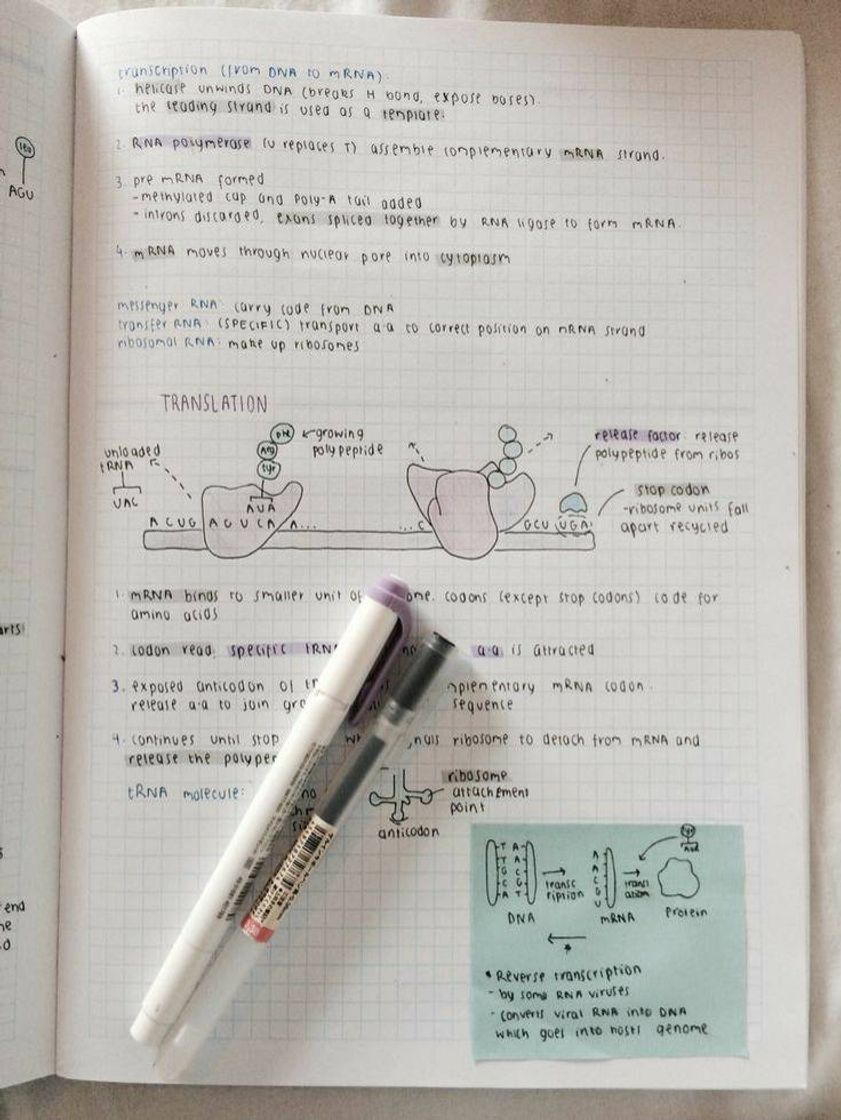 transcription (from DNA to mRNA).
1. helicase unwinds DNA (breaks H bond, expose bases).
the leading strand is used as a template.
2. RNA polymerase (U replaces T) assemble complementary mRNA strand.
3. pre mRNA formed
-methylated cap and poly-A tail added
-introns discarded, exons spliced together by RNA ligase to form mRNA.
4. mRNA moves through nuclear pore into cytoplasm
messenger RNA: carry code from DNA
transfer RNA: (SPECIFIC) transport a.a to correct position on mRNA strand
ribosomal RNA: make up ribosomes
AGU
TRANSLATION
unloaded
tRNA
UAC
phe
Arg
tyr
growing
polypeptide
AUA
ACUG AGUCA A...
...C
GCU UGA
release factor: release
polypeptide from ribos
stop codon
-ribosome units fall
apart recycled
1. mRNA binds to smaller unit of ome. codons (except stop codons) code for
amino acids
2. codon read, specific tRNA a.a is attracted
3. exposed anticodon of mplementary mRNA codon.
release a.a to join sequence
4. continues until stop ribosome to detach from mRNA and
release the
tRNA molecule:
ribosome
attachement
point
anticodon
T A
T A
G C
C G
A T
DNA
transc
ription
A
A
C
G
U
mRNA
transl
ation
tyr
AUA
Protein
*
* Reverse transcription
- by some RNA viruses
- converts viral RNA into DNA
which goes into hosts genome